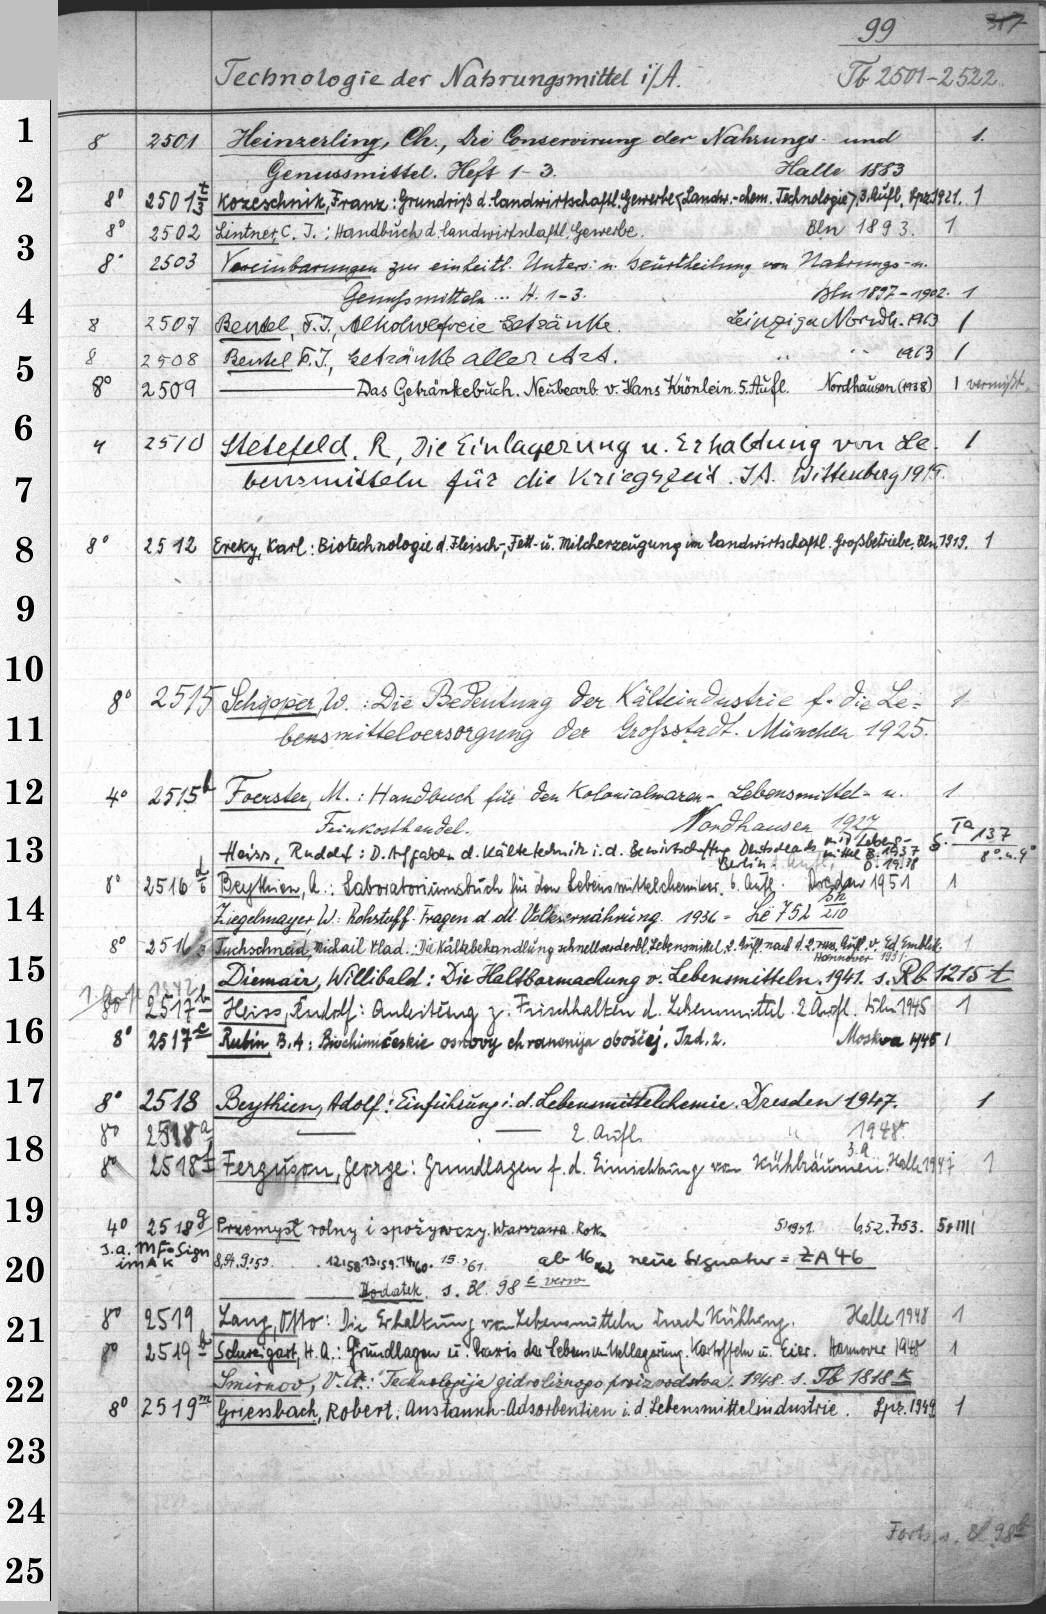 99 317
Technologie der Nahrungsmittel i/A. Tb 2501-2522.
1
8 2501 Heinzerling, Ch., Die Conservirung der Nahrungs- und 1.
Genussmittel. Heft 1-3. Halle 1883
2
8° 2501 t/3 Kozeschnik, Franz: Grundriß d. landwirtschaftl. Gewerbe <Landw.-chem. Technologie>, 3. Aufl., Lpz. 1921. 1
8° 2502 Lintner, C. J.: Handbuch d. landwirtschaftl. Gewerbe. Bln 1893. 1
3
8° 2503 Vereinbarungen zur einheitl. Unters: u. Beurtheilung von Nahrungs- u.
Genußmitteln ... H. 1-3. Bln 1897-1902. 1
4
8 2507 Beutel, F. J., Alkoholfreie Getränke. Leipzig u Nordh. 1913 1
8 2508 Beutel F. J., Getränke aller Art. " " 1913 1
5
8° 2509 Das Getränkebuch. Neubearb. v. Hans Krönlein. 5. Aufl. Nordhausen (1938) 1 vermißt.
6
4 2510 Stetefeld, R, Die Einlagerung u. Erhaltung von Le- 1
7
bensmitteln für die Kriegszeit. IA. Wittenberg 1915.
8
8° 2512 Ereky, Karl: Biotechnologie d. Fleisch-, Fett- u. Milcherzeugung im landwirtschaftl. Großbetriebe. Bln 1919. 1
9
10
8° 2515 Schipper, W.: Die Bedeutung der Kälteindustrie f. die Le= 1
11
bensmittelversorgung der Großstadt. München 1925.
12
4° 2515 b Foerster, M.: Handbuch für den Kolonialwaren- Lebensmittel- u. 1
Feinkosthandel. Nordhausen 1927
13
Heiss, Rudolf: D. Aufgaben d. Kältetechnik i. d. Bewirtschaftg Deutschlands mit Lebens- S. Ta 137
mittel B. 1937
Berlin 8° u. 4°
8° 2516 Beythien, A.: Laboratoriumsbuch für den Lebensmittelchemiker. 6. Aufl. Dresden 1951 1
14
Ziegelmayer, W: Rohstoff-Fragen d. dt. Volksernährung 1936 = Le 752 210
8° 2516 Tuchschneid, Michail Vlad.: Die Kältebehandlung schnellverderbl. Lebensmittel. 2. Aufl. nach d. 2. russ. Aufl. v. Ed. Emblik. 1
Hannover 1951
15
Diemair, Willibald: Die Haltbarmachung v. Lebensmitteln. 1941. s. Rb 1215 t
8° 2517 b Heiss, Rudolf: Anleitung z. Frischhalten d. Lebensmittel. 2. Aufl. Bln 1945 1
16
8° 2517 e Rubin, B. A: Biochimičeskie osnovy chranenija ovoščej. Izd. 2. Moskva 1945 1
17
8° 2518 Beythien, Adolf: Einführung i. d. Lebensmittelchemie. Dresden 1947. 1
8° 2518 a 2. Aufl. " 1948.
3. a
18
8° 2518 f Ferguson, George: Grundlagen f. d. Einrichtung von Kühlräumen. Halle 1947 1
19
4° 2518 g Przemysł rolny i spożywczy. Warszawa. Rok. 5, 1951. 6,52. 7,53. 5
s. a. MF=Sign
im AK 8,54. 9,59 12,58. 13,59. 14,60. 15,61. ab 16,62 neue Signatur = ZA 46
20
Dodatek s. Bl. 98 c verso
21
8° 2519 Lang, Otto: Die Erhaltung von Lebensmitteln durch Kühlung. Halle 1948 1
8° 2519 h Schweigart, H. A.: Grundlagen u. Praxis der Lebensmittellagerung. Kartoffeln u. Eier. Hannover 1948 1
22
Smirnov, V. A.: Technologija gidroliznogo proizvodstva. 1948. s. Tb 1818 k
8° 2519 m Griessbach, Robert: Austausch-Adsorbentien i. d. Lebensmittelindustrie. Lpz. 1949 1
23
24
Forts. s. Bl. 98
25